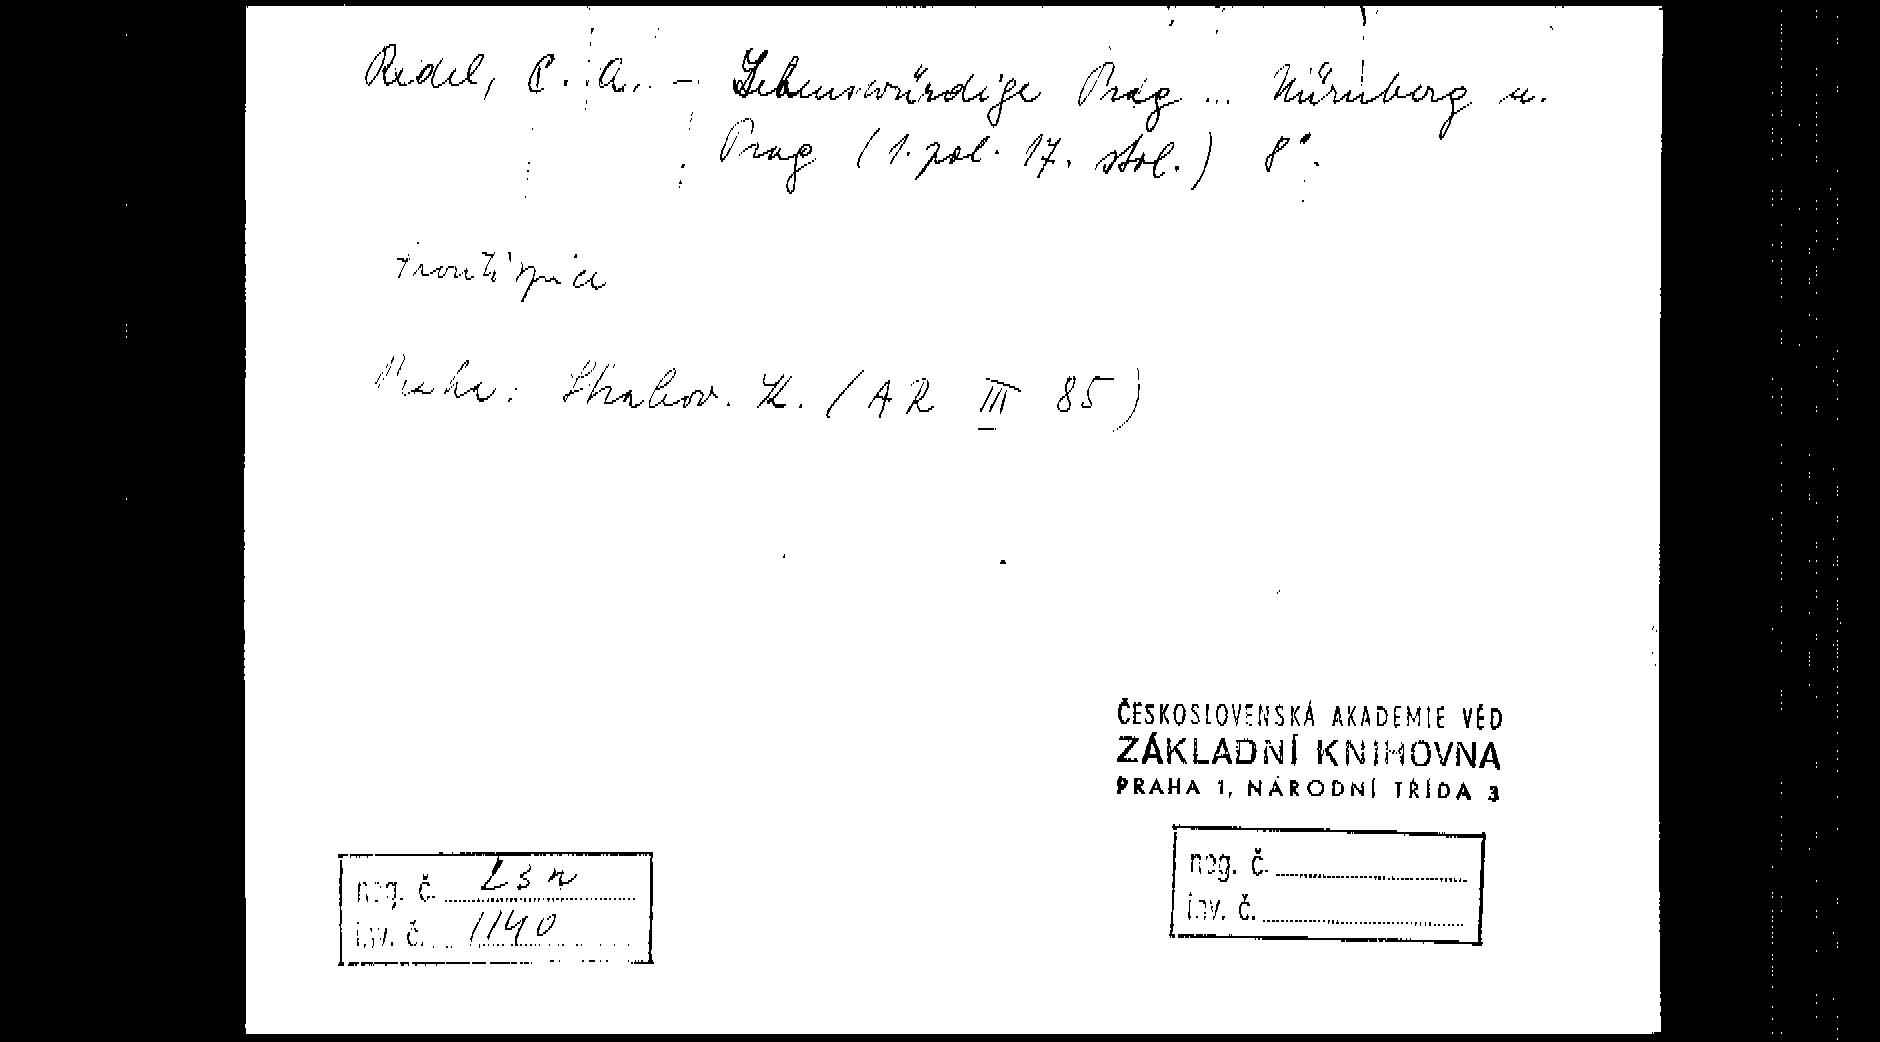 Redel, C. A. - Sehenswürdige Prag ... Nürnberg u.
Prag (1. pol. 17. stol.) 8°.
frontispice
Praha: Strahov. K. (AR III 85)
ČESKOSLOVENSKÁ AKADEMIE VĚD
ZÁKLADNÍ KNIHOVNA
PRAHA 1, NÁRODNÍ TŘÍDA 3
neg. č.
inv. č.
neg. č.
inv. č. 1140